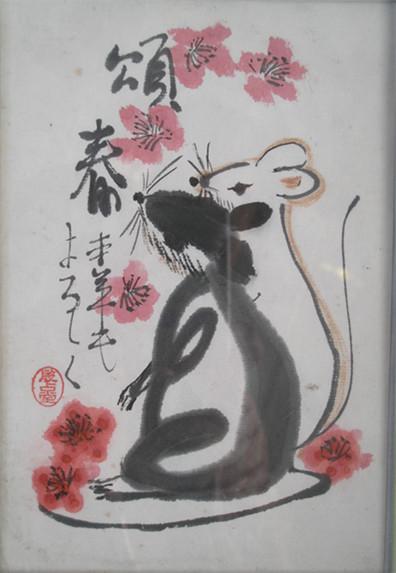 頌春
本年も
よろしく